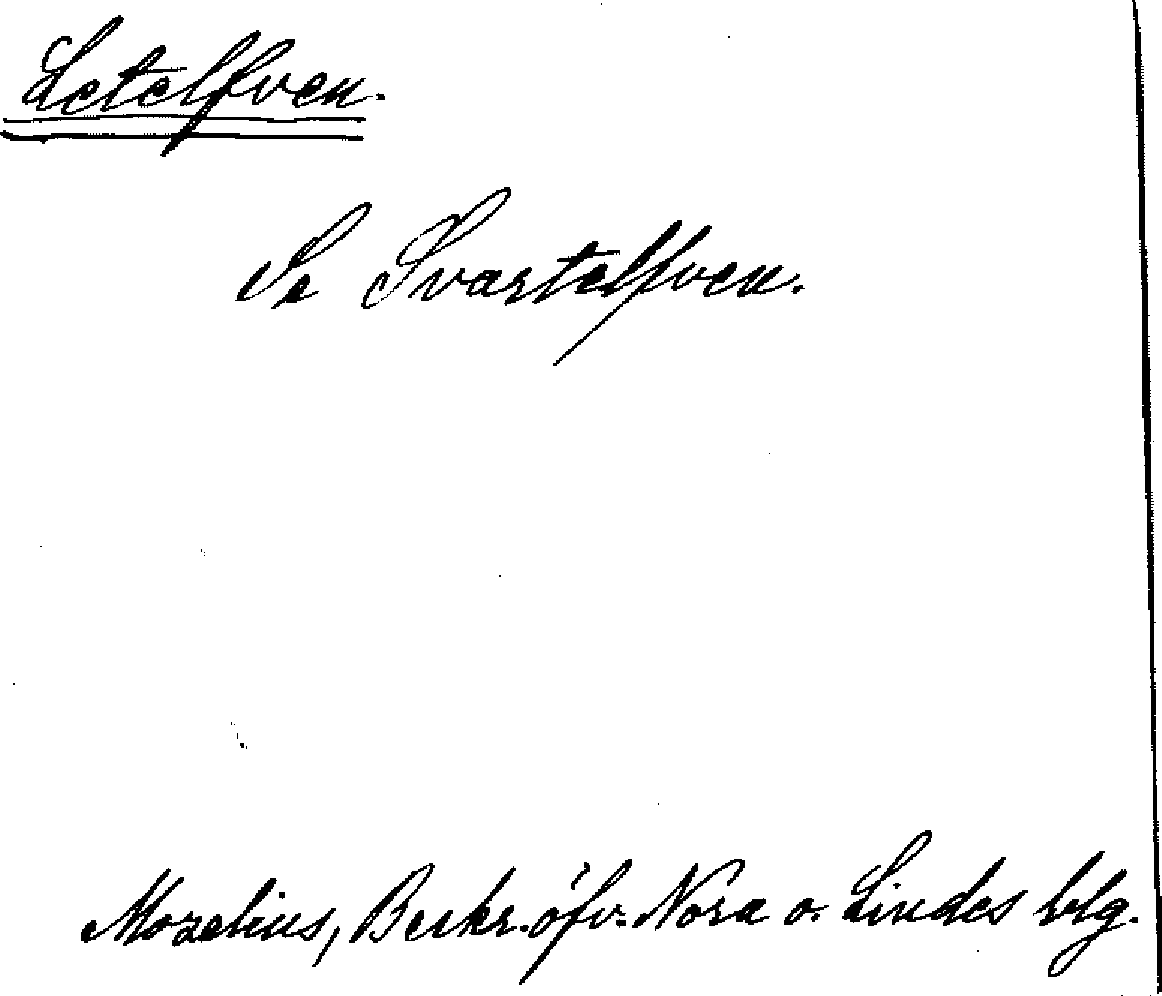 Letelfven.
Se Svartelfven.
Morelius, Beskr. öfv. Nora o. Lindes blg.